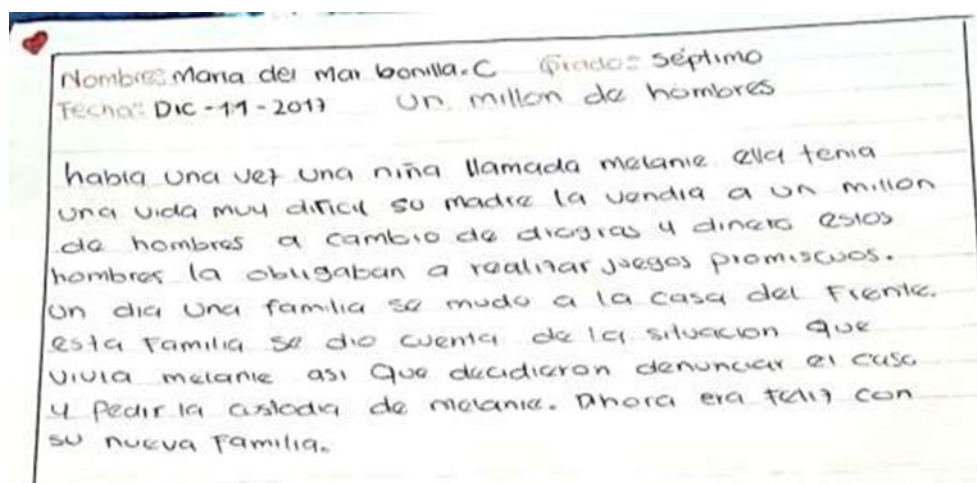 Nombre: Maria del Mar bonilla. C Grado: Séptimo
Fecha: DIC - 11 - 2017 Un millon de hombres
habia una vez una niña llamada melanie ella tenia
una vida muy dificil su madre la vendia a un millon
de hombres a cambio de drogras y dinero estos
hombres la obligaban a realizar juegos promiscuos.
un dia una familia se mudo a la casa del Frente.
esta Familia se dio cuenta de la situacion que
vivia melanie asi que decidieron denunciar el caso
y Pedir la custodia de melanie. Ahora era feliz con
su nueva Familia.